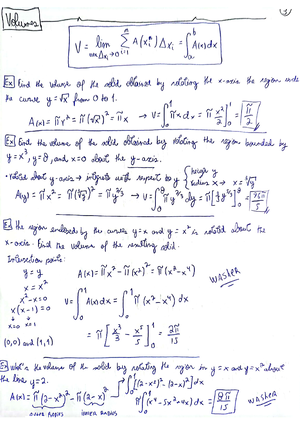 Volumes
V = lim max Δxᵢ→0 Σ i=1 n A(xᵢ*) Δxᵢ = ∫ₐᵇ A(x)dx
Ex Find the volume of the solid obtained by rotating the x-axis the region under
the curve y=√x from 0 to 1.
A(x) = πr² = π(√x)² = πx → V = ∫₀¹ πx dx = π x²/2 |₀¹ = π/2
Ex Find the volume of the solid obtained by rotating the region bounded by
y=x³, y=8, and x=0 about the y-axis.
• rotated about y-axis → integrate with respect to y { height y
radius x → x=∛y
A(y) = πx² = π(∛y)² = πy^(2/3) → V = ∫₀⁸ πy^(2/3) dy = π[3/5 y^(5/3)]₀⁸ = 96π/5
Ex The region enclosed by the curves y=x and y=x² is rotated about the
x-axis. Find the volume of the resulting solid.
Intersection points:
y = y
A(x) = πx² - π(x²)² = π(x²-x⁴)
washer
x = x²
x²-x=0
V = ∫₀¹ A(x)dx = ∫₀¹ π(x²-x⁴) dx
x(x-1)=0
x=0 x=1
= π[x³/3 - x⁵/5]₀¹ = 2π/15
(0,0) and (1,1)
Ex What is the volume of the solid by rotating the region in y=x and y=x² about
the line y=2.
→ ∫₀¹ [(2-x²)² - (2-x)²] dx
A(x) = π(2-x²)² - π(2-x)²
π∫₀¹ (x⁴-5x²+4x) dx = 8π/15
washer
outer radius inner radius